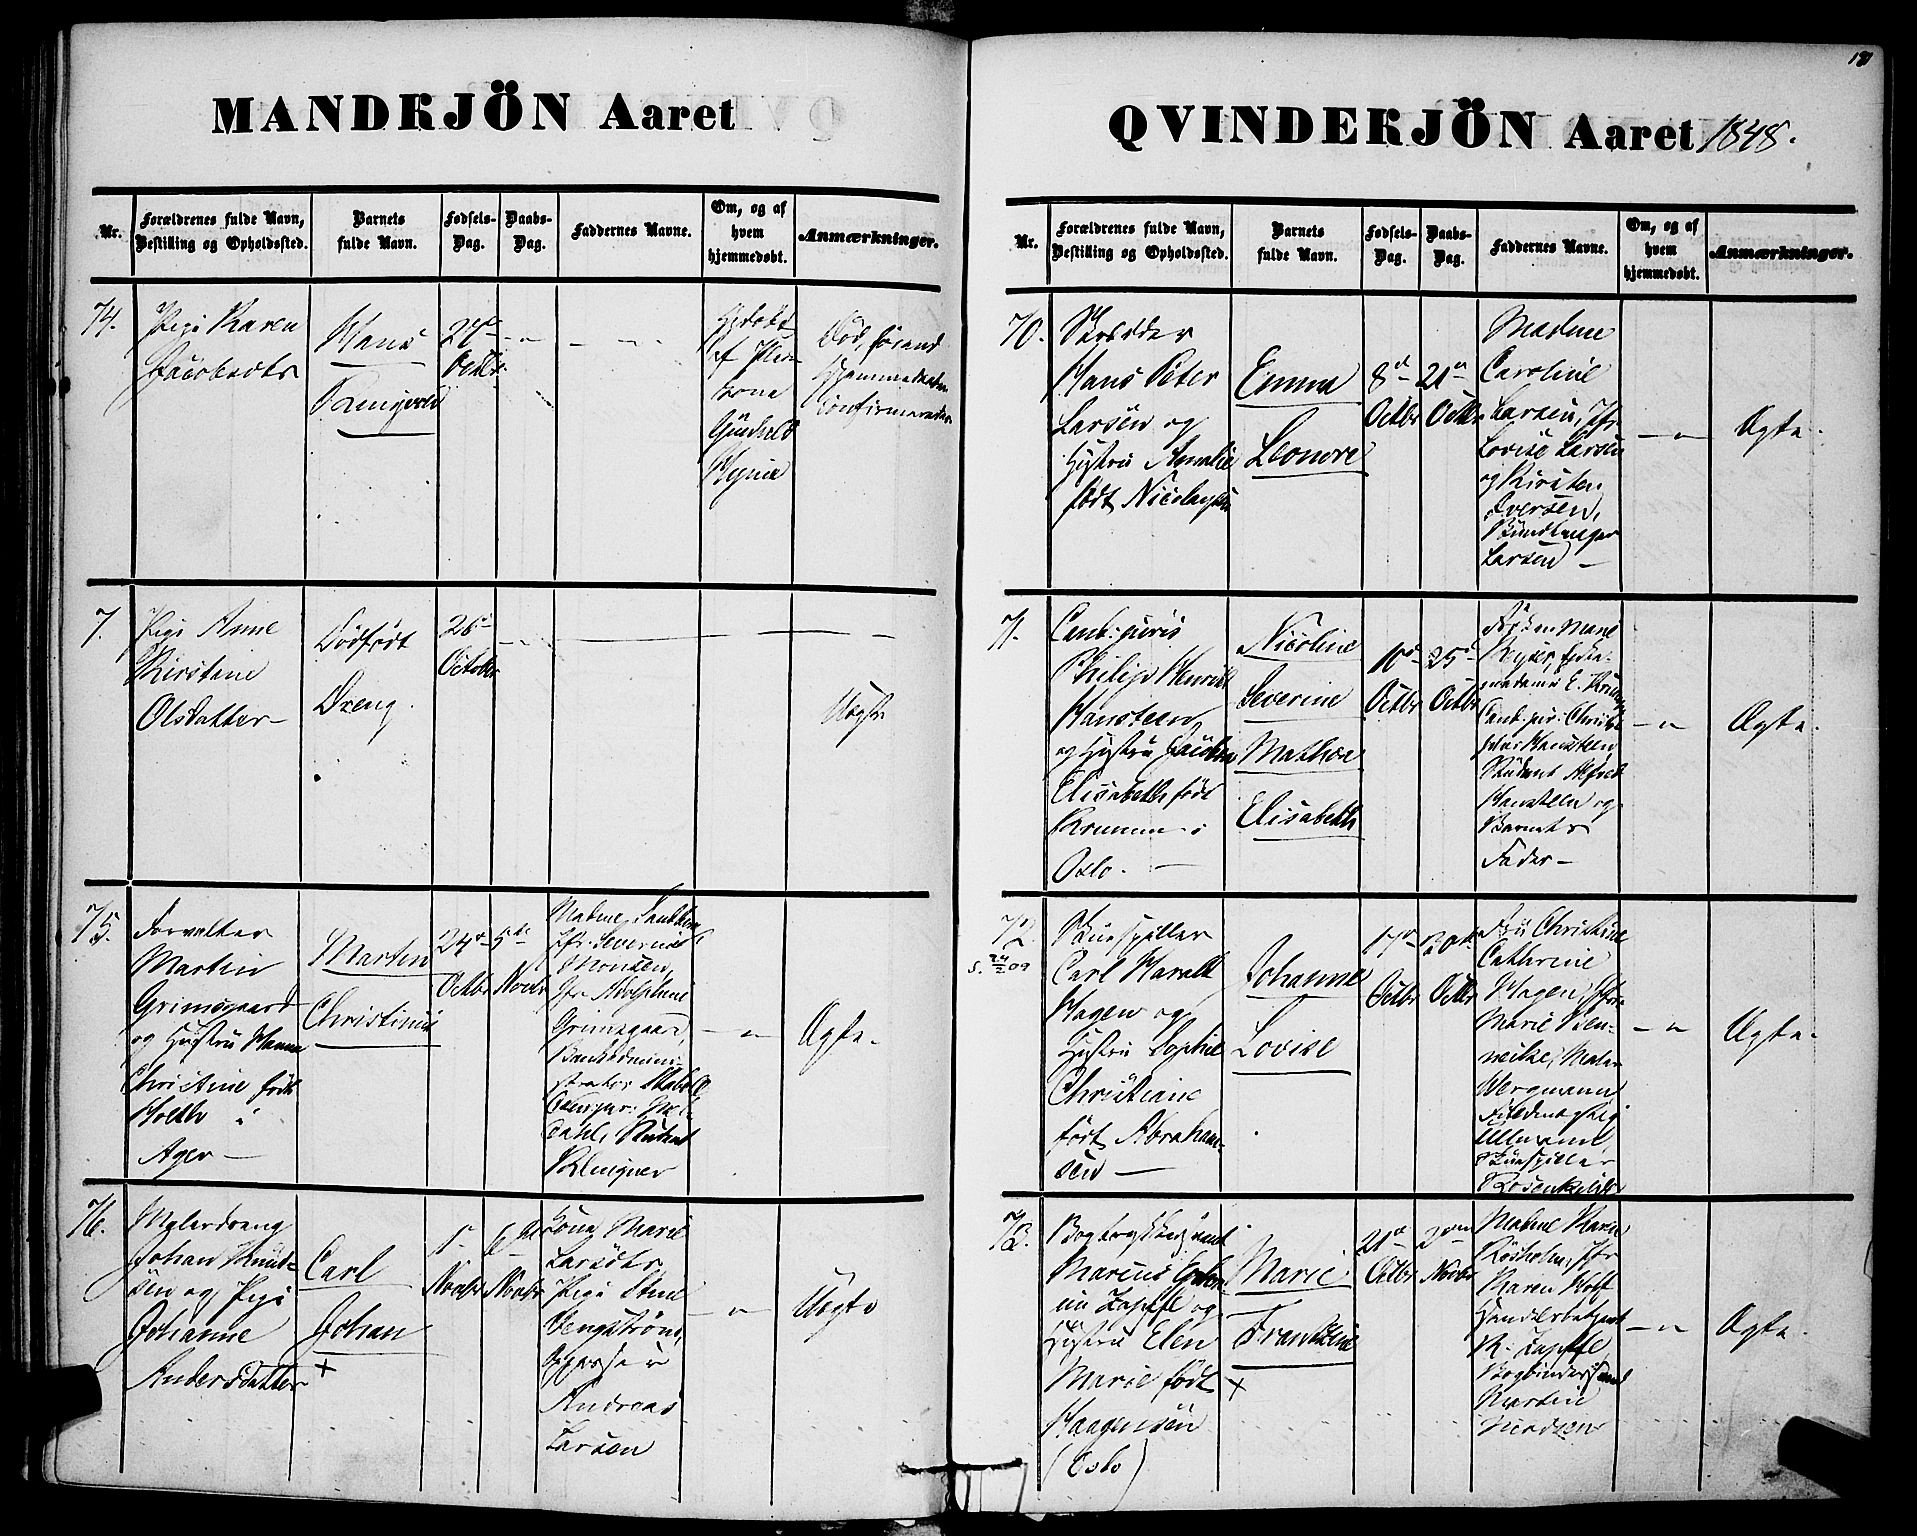 MANDKJÖN Aaret
Nr.
Forældrenes fulde Navn,
Bestilling og Opholdssted.
Barnets
fulde Navn.
Fødsels-
Dag.
Daabs-
Dag.
Faddernes Navne.
Om, og af
hvem
hjemmedøbt.
Anmærkninger.
74.
Pige Karen
Jacobsdtr
Hans
27de
Octbr.
Hjdøbt
af Jor-
kone
Gunhild
Død, førend
Hjemmedaaben
confirmeredes
7.
Pige Anne
Kirstine
Olsdatter
Dødfødt
Dreng.
26
October
Uægte
75.
Forvalter
Martin
Grimsgaard
og Hustru Hanna
Christine født
Holth i
Ager
Martin
Christinus
24de
Octbr
5te
Novbr
Madme
Jfr. Severine
Monsen,
Jfr. Adolphine
Grimsgaard,
Bankadmini-
strator
Dahl, Student
Klingner
Ægte.
76.
Malerdreng
Johan Knud-
sen og Pige
Johanne
Andersdatter
Carl
Johan
+
1
Novbr
6
Novbr
Kone Marie
Larsdtr,
Pige
Oppasser
Andreas
Larsen
Uægte
QVINDEKJÖN Aaret 1848.
Nr.
Forældrenes fulde Navn,
Bestilling og Opholdssted.
Barnets
fulde Navn.
Fødsels-
Dag.
Daabs-
Dag.
Faddernes Navne.
Om, og af
hvem
hjemmedøbt.
Anmærkninger.
70.
Skrædder
Hans Peter
Larsen og
Hustru Amalie
født Nicolaysen
Emma
Leonore
8de
Octbr
21de
Octbr
Madme
Caroline
Larsen, Jfr.
Lovise Larsen
og Kirsten
Iversen,
Bundtmager
Larsen
Ægte.
71.
Cand. juris
Philip Henrik
Hansteen
og Hustru
Elisabeth født
Krumm i
Oslo.
Nicoline
Severine
Mathea
Elisabeth
10de
Octbr
25de
Octbr
Frøken Marie
Cand. jur. Christo-
pher Hansteen
Student Alfred
Hansteen og
Barnets
Fader
Ægte.
72.
Skuespiller
Carl Harald
Hagen og
Hustru Sophie
Christiane
født Abraham-
sen
Johanne
Lovise
17de
Octbr
30te
Octbr
Fru Christine
Cathrine
Hagen, Jfr.
Marie Ben-
neche, Maler
Bergmann
Ullmann
Skuespiller
Rosenkilde
Ægte.
73.
Bogtrykkersvend
Marcus
Zapffe og
Hustru Elen
Marie født
Haagensen
(Oslo)
Marie
Franzine
+
21de
Octbr
2den
Novbr
Madme Karen
Rosholm, Jfr.
Maren Hoff
Handelsbetjent
K. Zapffe
Bogbindersvend
Martin
Madsen
Ægte.